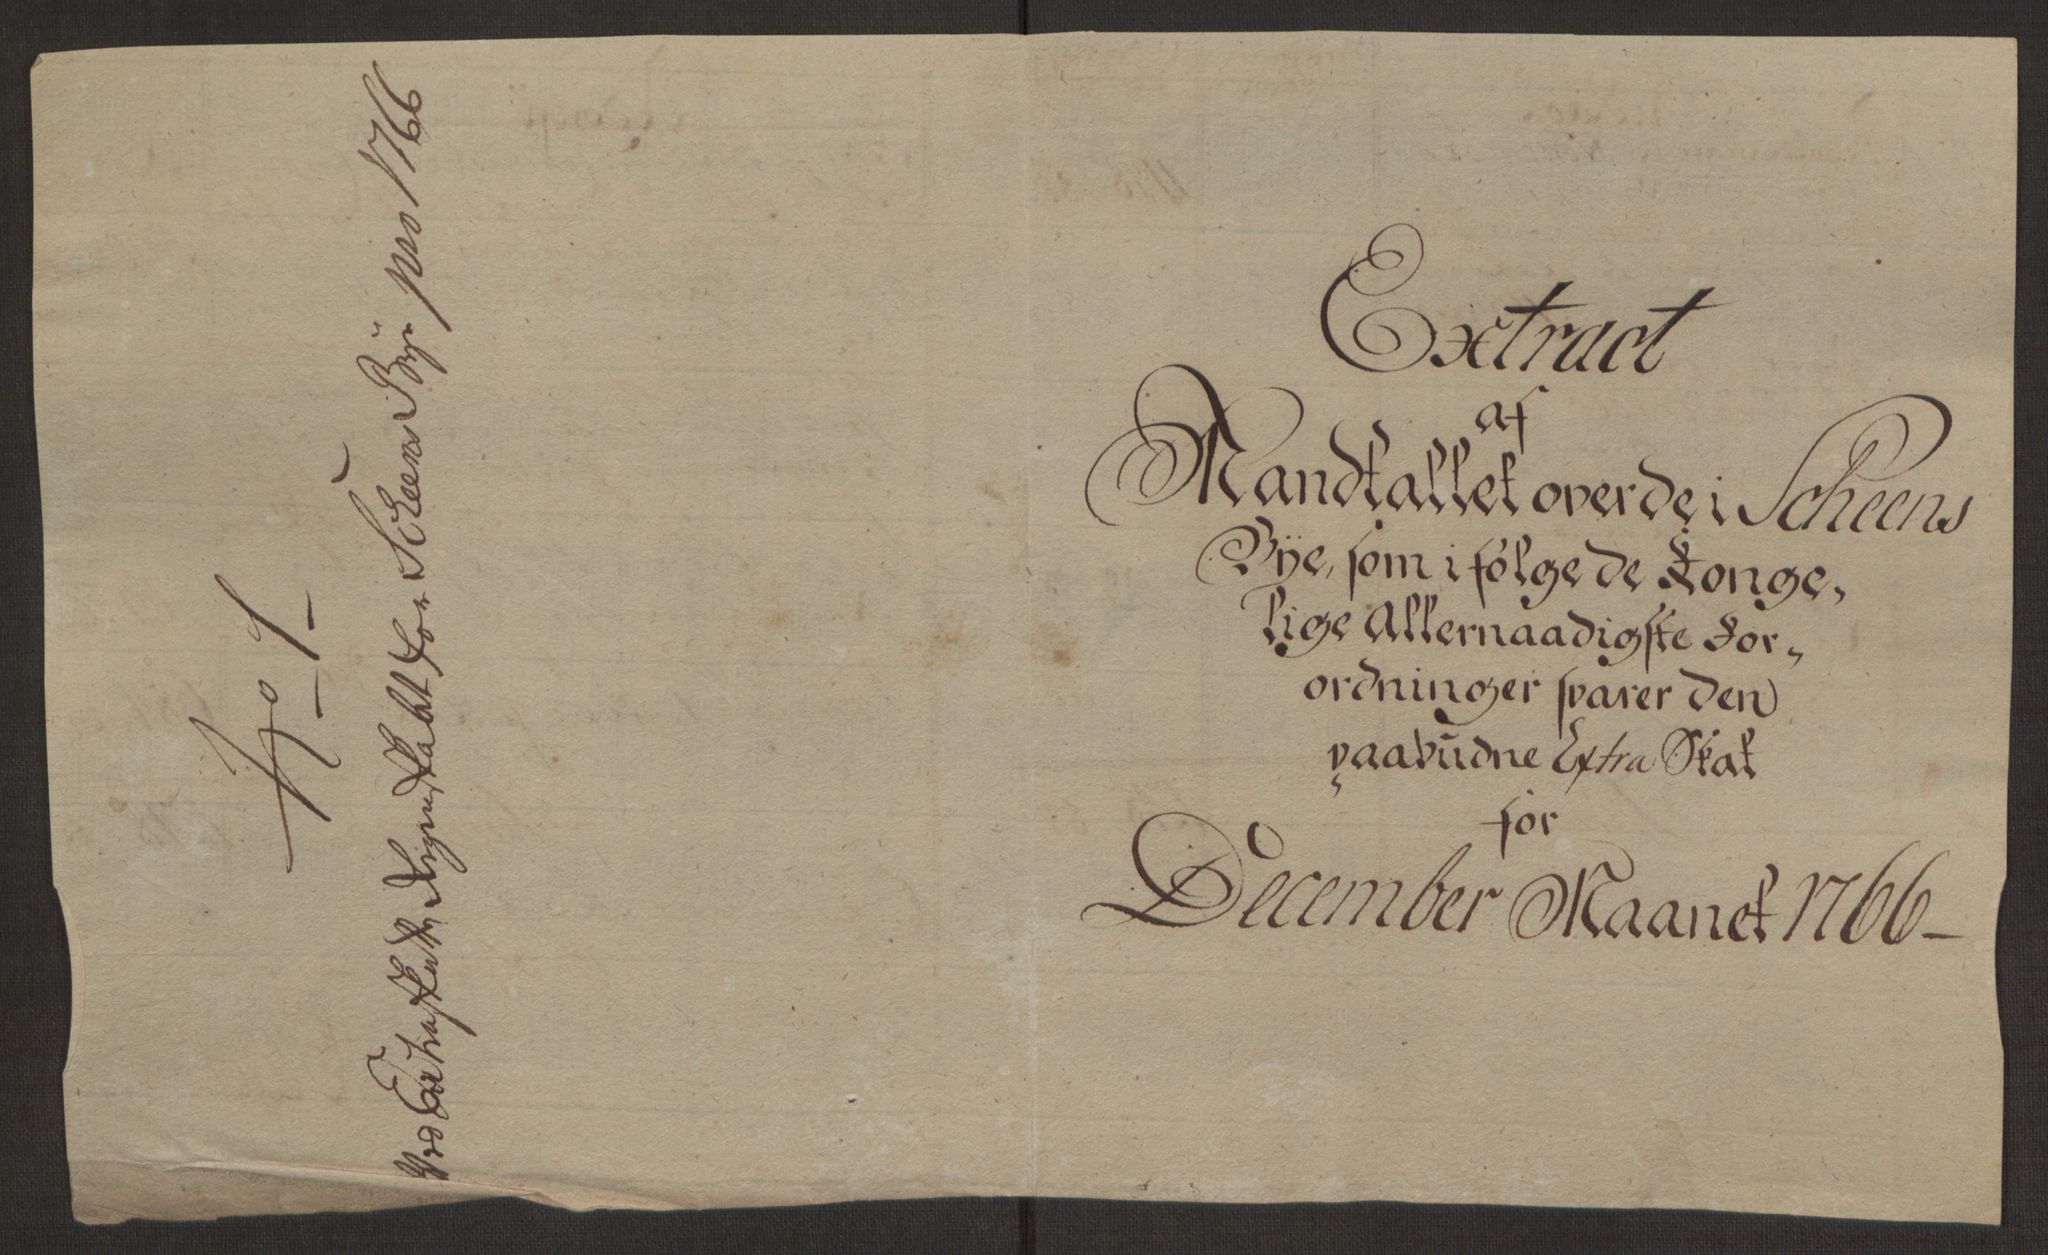 No 1
Ved Extraskatte Regenskabet for Scheens Bye pro 1766
Extract
af
Mandtallet over de i Scheens
Bÿe, som i følge de Konge„
lige Allernaadigste For„
ordninger svarer den
paabudne Extra Skat
for
December Maanet 1766